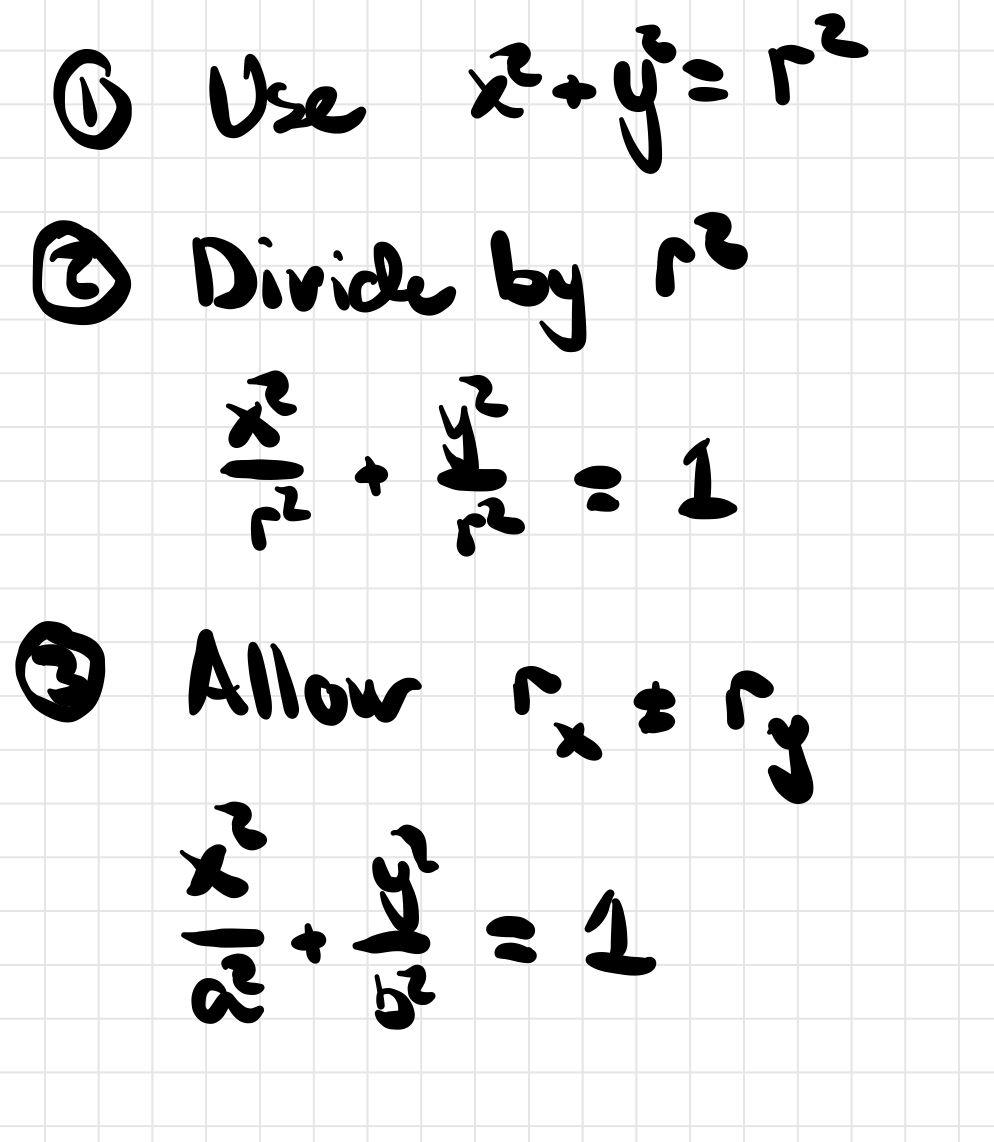 ① Use x² + y² = r²
② Divide by r²
x²/r² + y²/r² = 1
③ Allow rₓ ≠ r_y
x²/a² + y²/b² = 1